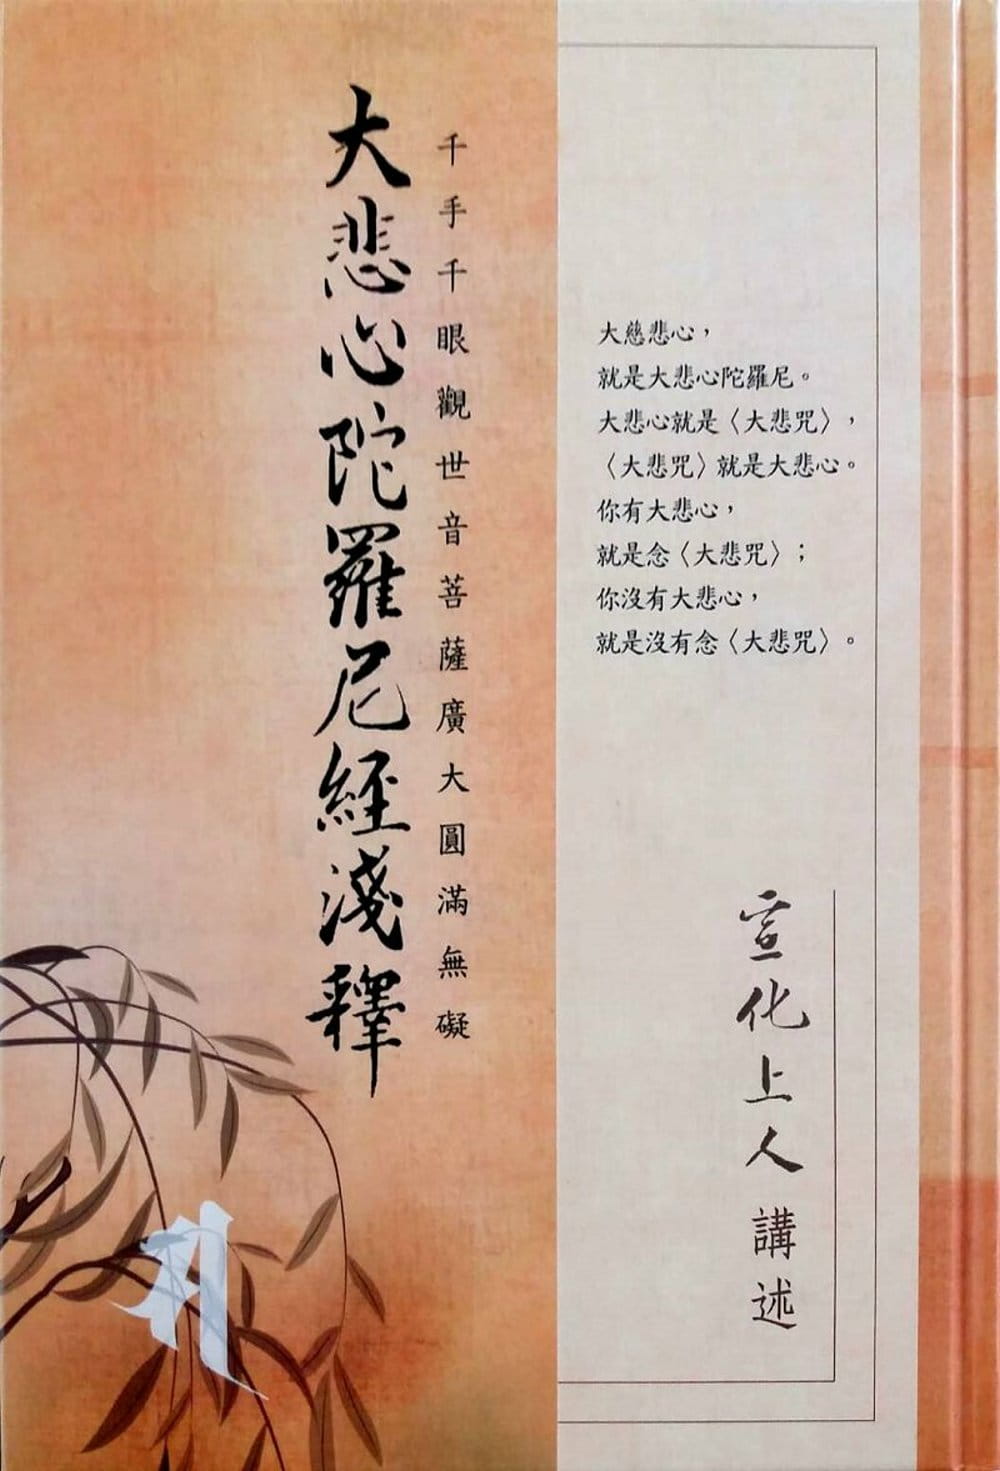 千手千眼觀世音菩薩廣大圓滿無礙
大悲心陀羅尼經淺釋
大慈悲心，
就是大悲心陀羅尼。
大悲心就是〈大悲咒〉，
〈大悲咒〉就是大悲心。
你有大悲心，
就是念〈大悲咒〉；
你沒有大悲心，
就是沒有念〈大悲咒〉。
宣化上人 講述